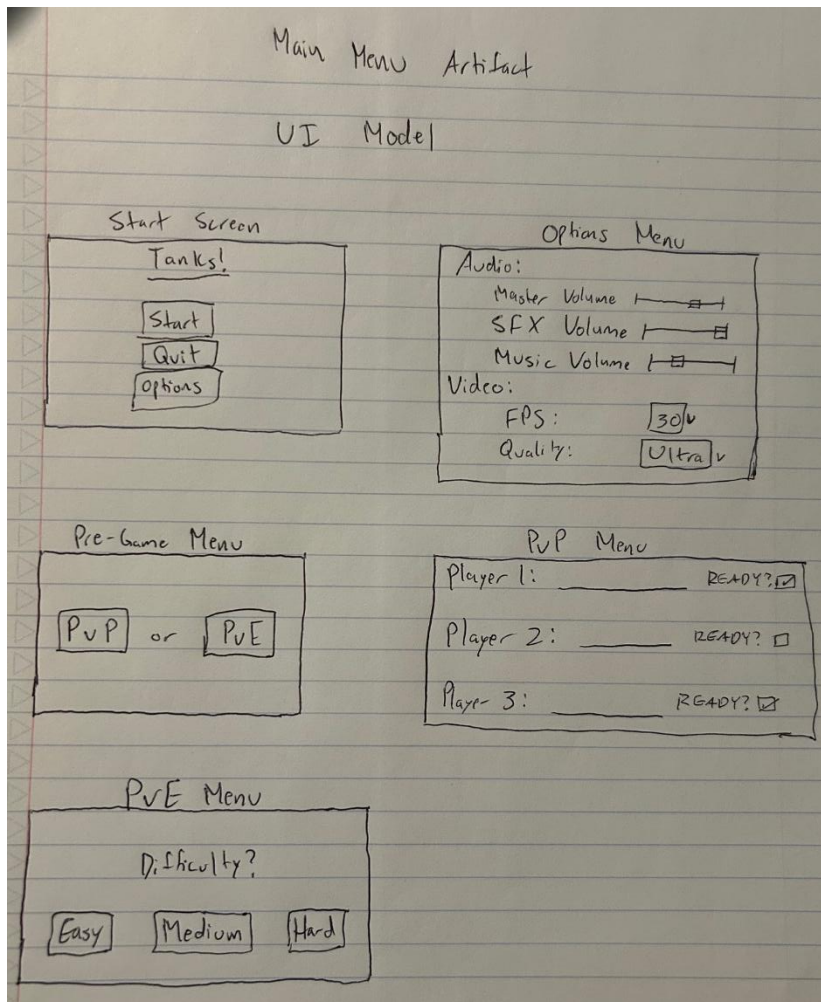 Main Menu Artifact
UI Model
Start Screen
Tanks!
Start
Quit
Options
Options Menu
Audio:
Master Volume
SFX Volume
Music Volume
Video:
FPS: 30
Quality: Ultra
Pre-Game Menu
PvP or PvE
PvP Menu
Player 1: READY?
Player 2: READY?
Player 3: READY?
PvE Menu
Difficulty?
Easy Medium Hard